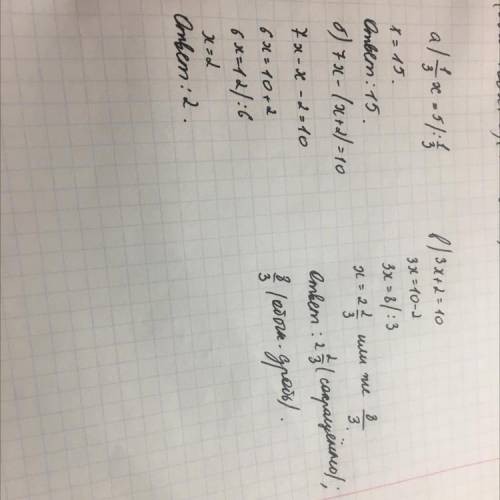 а) 1/3 x = 5 | : 1/3
x = 15.
Ответ: 15.
б) 7x - (x+2) = 10
7x - x - 2 = 10
6x = 10+2
6x = 12 | :6
x = 2
Ответ: 2.
в) 3x+2 = 10
3x = 10-2
3x = 8 | :3
x = 2 2/3 или же 8/3.
Ответ: 2 2/3 (сокращённо);
8/3 (обык. дробь).